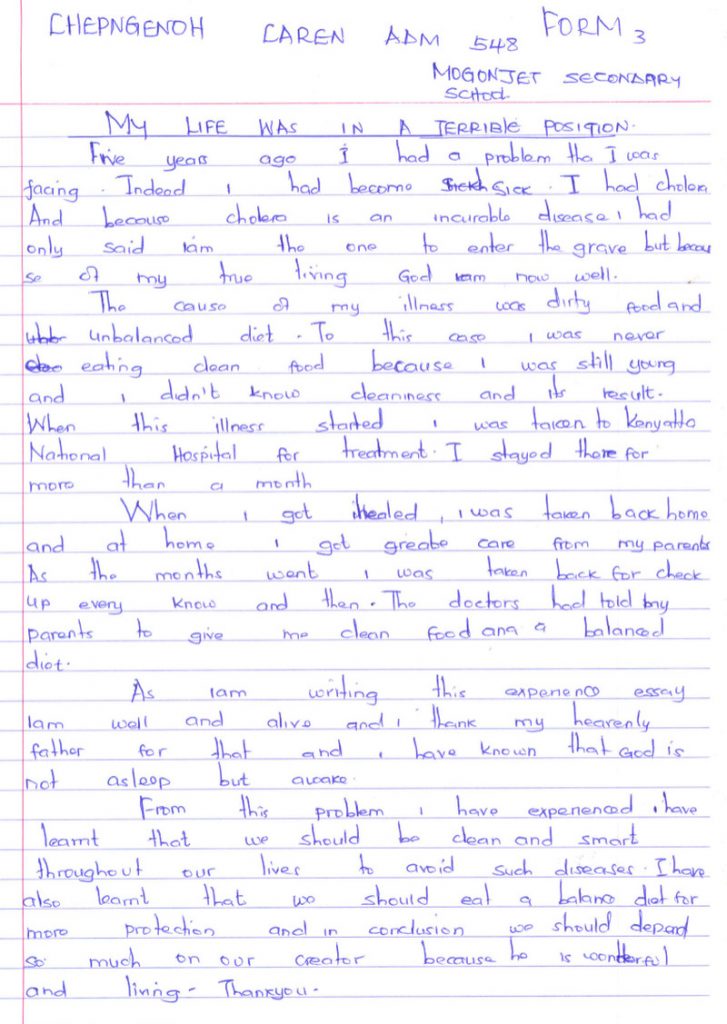 CHEPNGENOH CAREN ADM 548 FORM 3
MOGONJET SECONDARY
SCHOOL
MY LIFE WAS IN A TERRIBLE POSITION.
Five years ago I had a problem tha I was
facing. Indeed I had become sick. I had cholera
And because cholera is an incurable disease, I had
only said iam the one to enter the grave but becau
se of my true living God iam now well.
The cause of my illness was dirty food and
unbalanced diet. To this case I was never
eating clean food because I was still young
and I didn't know cleaniness and its result.
When this illness started I was taken to Kenyatta
National Hospital for treatment. I stayed there for
more than a month
When I got healed, I was taken back home
and at home I got greate care from my parents
As the months went I was taken back for check
up every know and then. The doctors had told my
parents to give me clean food and a balanced
diet.
As Iam writing this experience essay
Iam well and alive and I thank my heavenly
father for that and I have known that God is
not asleep but awake.
From this problem I have experienced I have
learnt that we should be clean and smart
throughout our lives to avoid such diseases. I have
also learnt that we should eat a balanc diet for
more protection and in conclusion we should depend
so much on our creator because he is wonderful
and living - Thankyou.